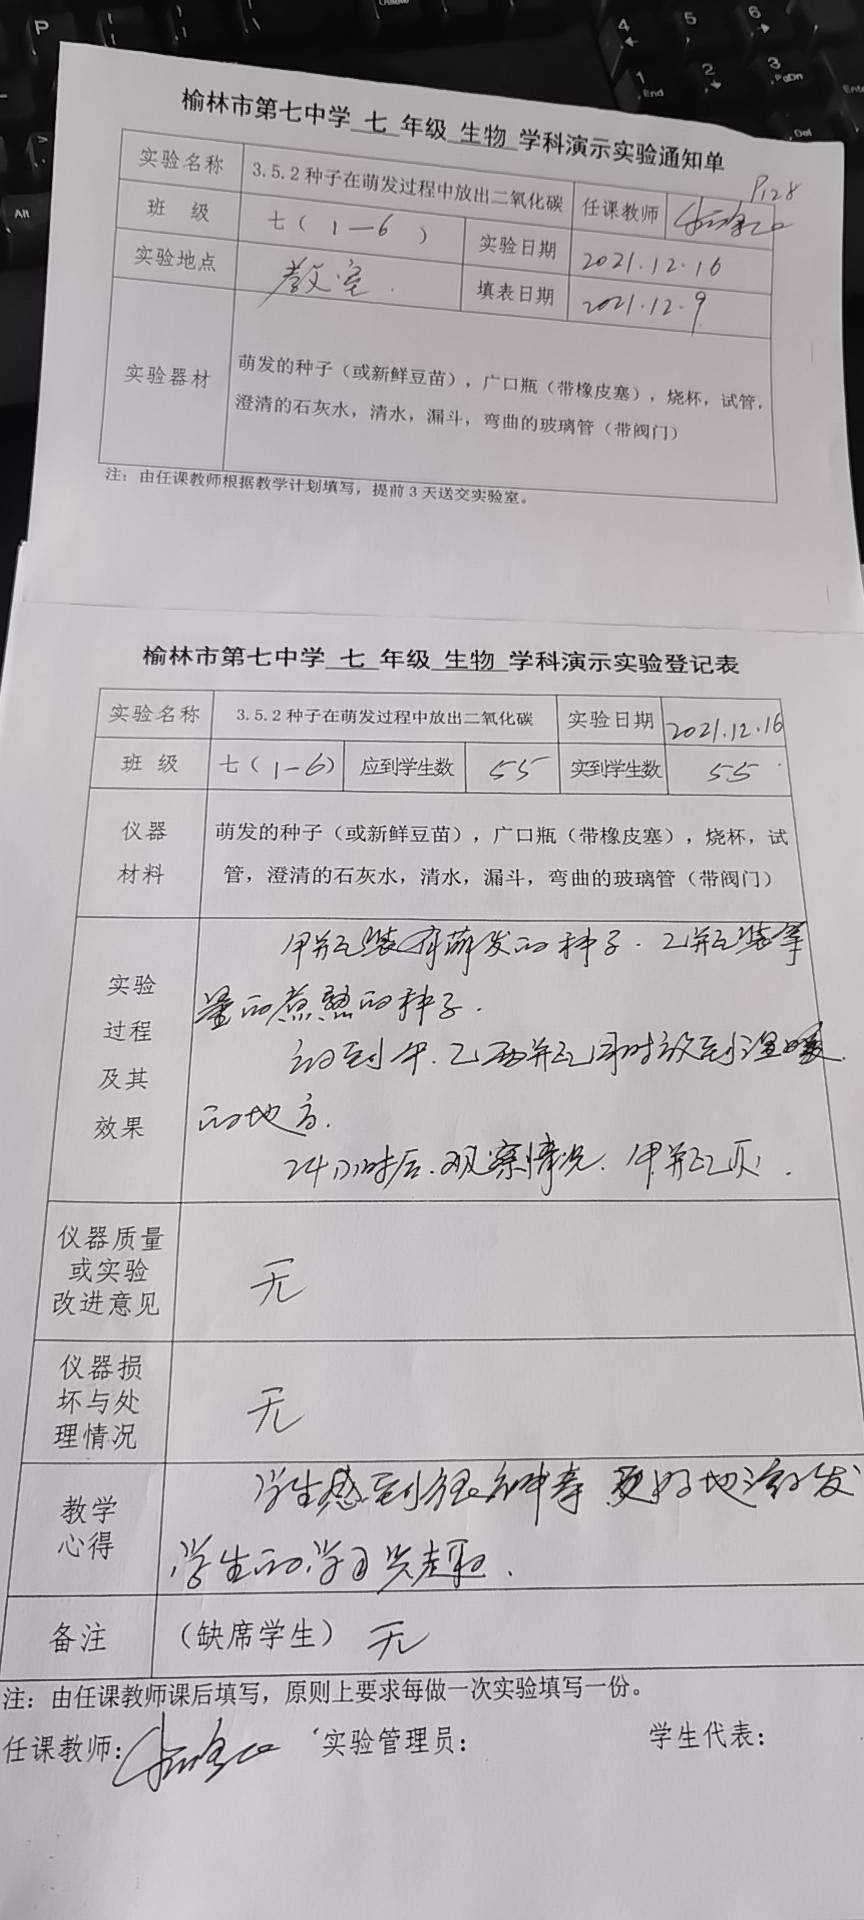 榆林市第七中学 七 年级 生物 学科演示实验通知单
P128
实验名称 3.5.2种子在萌发过程中放出二氧化碳 任课教师
班 级 七( 1-6 ) 实验日期 2021.12.16
实验地点 教室. 填表日期 2021.12.9
实验器材
萌发的种子(或新鲜豆苗),广口瓶(带橡皮塞),烧杯,试管,
澄清的石灰水,清水,漏斗,弯曲的玻璃管(带阀门)
注:由任课教师根据教学计划填写,提前3天送交实验室。
榆林市第七中学 七 年级 生物 学科演示实验登记表
实验名称 3.5.2种子在萌发过程中放出二氧化碳 实验日期 2021.12.16
班 级 七(1-6) 应到学生数 55 实到学生数 55
仪器
材料
萌发的种子(或新鲜豆苗),广口瓶(带橡皮塞),烧杯,试
管,澄清的石灰水,清水,漏斗,弯曲的玻璃管(带阀门)
实验
过程
及其
效果
甲瓶装有萌发的种子.乙瓶装等
量的煮熟的种子.
甲.乙两瓶同时放到温暖
的地方.
24小时后.观察情况.甲瓶
仪器质量
或实验
改进意见
无
仪器损
坏与处
理情况
无
教学
心得
学生感到很神奇 更好地激发
学生的学习兴趣.
备注 (缺席学生) 无
注:由任课教师课后填写,原则上要求每做一次实验填写一份。
任课教师: 实验管理员: 学生代表:
P
Alt
4
5
6
1
End
2
3
PgDn
Del